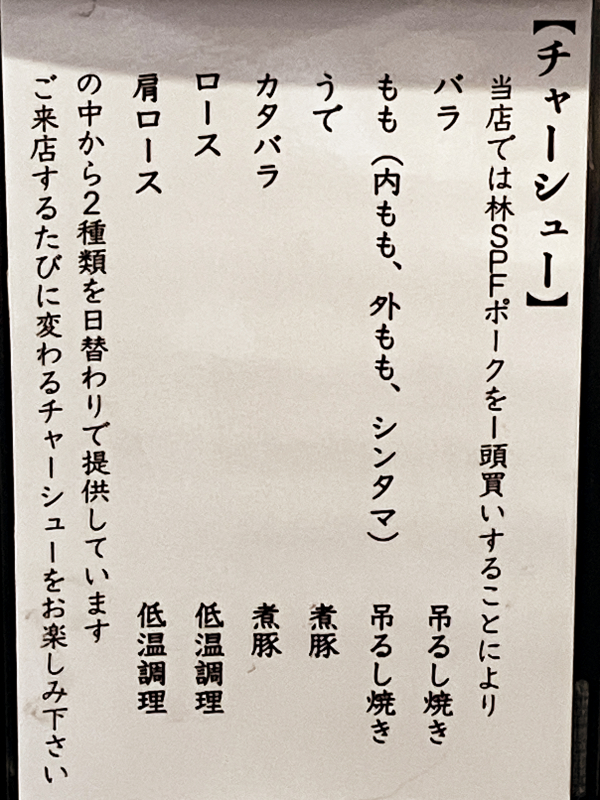 【チャーシュー】
当店では林SPFポークを一頭買いすることにより
バラ 吊るし焼き
もも（内もも、外もも、シンタマ） 吊るし焼き
うで 煮豚
カタバラ 煮豚
ロース 低温調理
肩ロース 低温調理
の中から2種類を日替わりで提供しています
ご来店するたびに変わるチャーシューをお楽しみ下さい